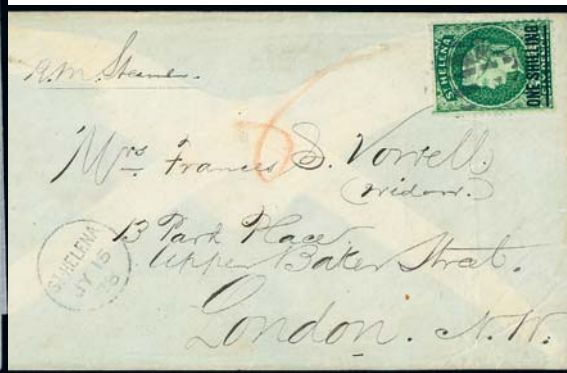 ST. HELENA
ONE SHILLING
Mrs Frances S. Vowell
(widow.)
13 Park Place
Upper Baker Street.
London. N.W.
ST. HELENA
JY 15